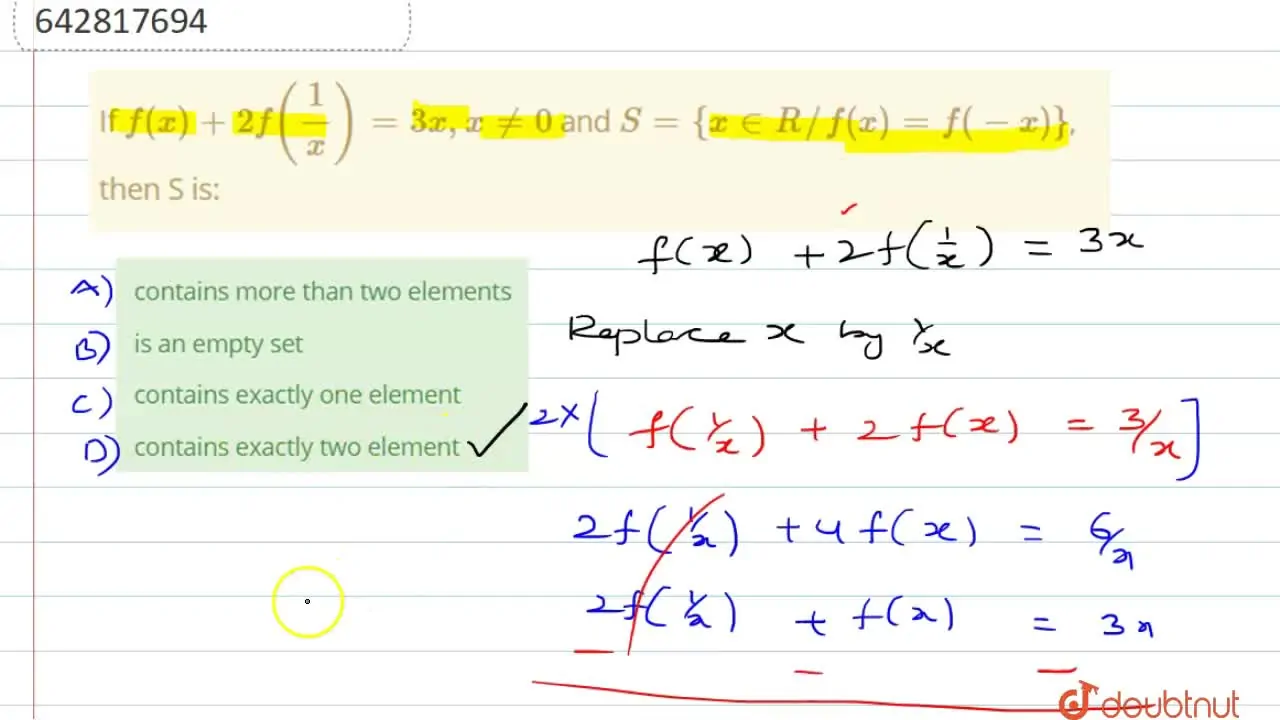 642817694
If f(x) + 2f(1/x) = 3x, x ≠ 0 and S = {x ∈ R/f(x) = f(−x)},
then S is:
A) contains more than two elements
B) is an empty set
C) contains exactly one element
D) contains exactly two element ✓
f(x) + 2f(1/x) = 3x
Replace x by 1/x
2×[f(1/x) + 2f(x) = 3/x]
2f(1/x) + 4f(x) = 6/x
2f(1/x) + f(x) = 3x
doubtnut